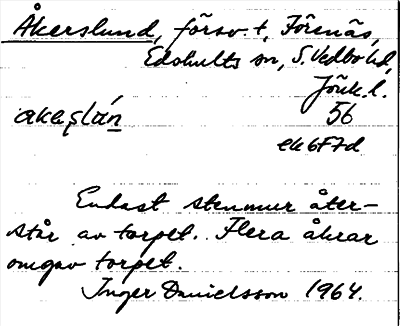 Åkerslund, försv. t, Förenäs,
Edshults sn, S. Vedbo hd,
Jönk. l.
akəʂlán 56
ek6F7d
Endast stenmur åter-
står av torpet. Flera åkrar
omgav torpet.
Inger Danielsson 1964.